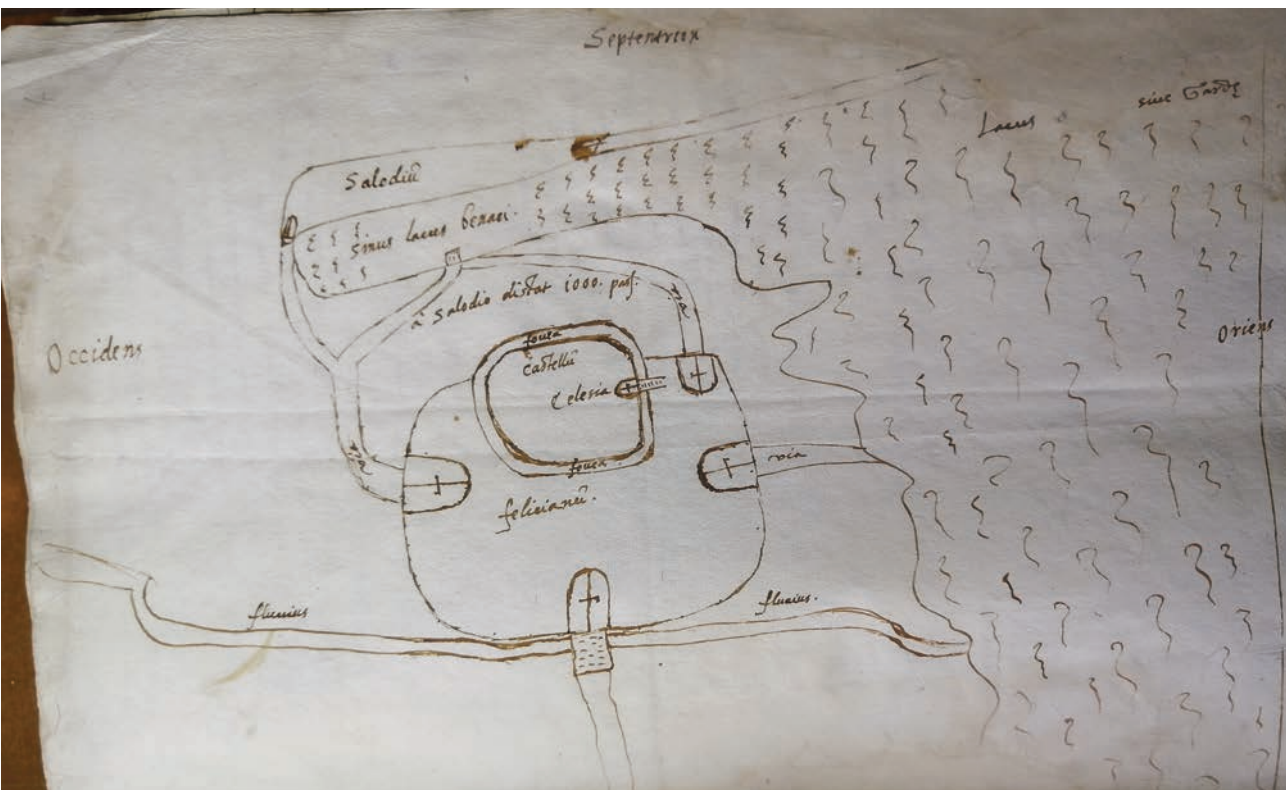 Septentrio
Lacus sive Gardę
Salodiū
Sinus lacus benaci.
à Salodio distat 1000. pass.
via
Occidens
Oriens
fovea
Castellū
Eclesia
fovea
via
via
felicianū.
fluvius
fluvius.